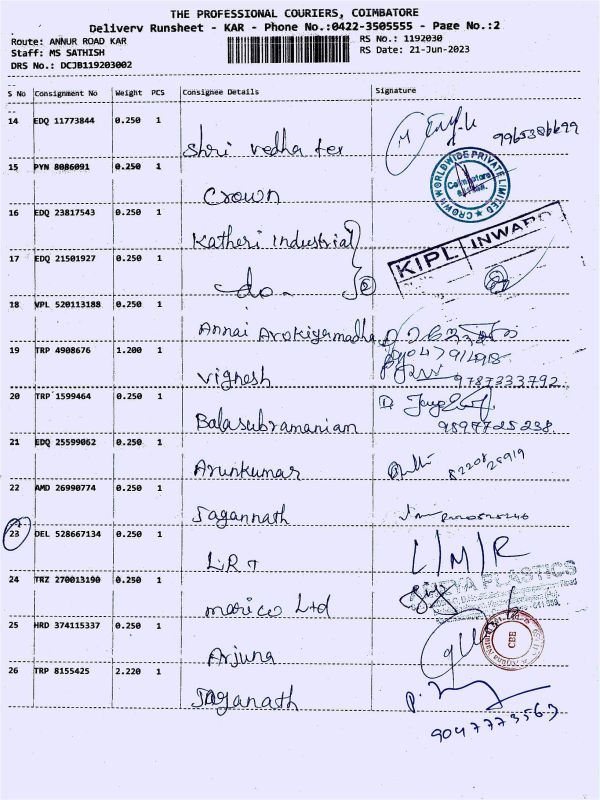 THE PROFESSIONAL COURIERS, COIMBATORE
Delivery Runsheet - KAR - Phone No.:0422-3505555 - Page No.:2
Route: ANNUR ROAD KAR
RS No.: 1192030
Staff: MS SATHISH
RS Date: 21-Jun-2023
DRS No.: DCJB119203002
S No Consignment No Weight PCS Consignee Details Signature
14 EDQ 11773844 0.250 1
Shri vedha tex
9965386699
15 PYN 8086091 0.250 1
Crown
CROWN WORLDWIDE PRIVATE LIMITED
Coimbatore
16 EDQ 23817543 0.250 1
Katheri Industrial
KIPL INWARD
17 EDQ 21501927 0.250 1
do - 2
18 VPL 520113188 0.250 1
Annai Arokiyamadha
19 TRP 4908676 1.200 1
Vignesh
9787333792
20 TRP 1599464 0.250 1
Balasubramanian
9897725238
21 EDQ 25599062 0.250 1
Arunkumar
22 AMD 26990774 0.250 1
Jagannath
23 DEL 528667134 0.250 1
L.R.T
L/M/R
24 TRZ 270013190 0.250 1
Marico Ltd
PLASTICS
25 HRD 374115337 0.250 1
Arjuna
CBE
26 TRP 8155425 2.220 1
Jaganath
9047773563